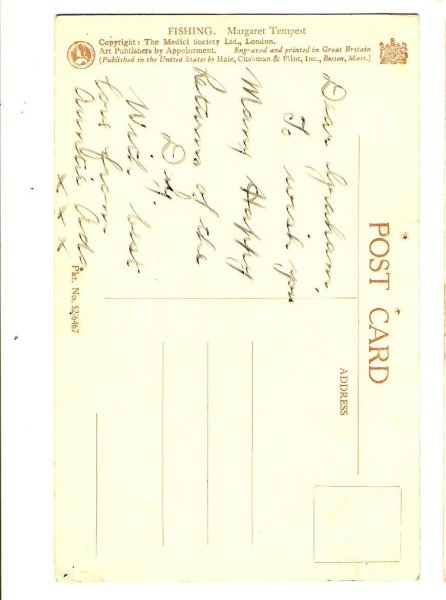 FISHING. Margaret Tempest
Copyright: The Medici Society Ltd., London.
Art Publishers by Appointment. Engraved and printed in Great Britain
(Published in the United States by Hale, Cushman & Flint, Inc., Boston, Mass.)
POST CARD
Dear Graham,
To wish you
Many Happy
Returns of the
Day
With best
love from
Auntie Ada
x x x
ADDRESS
Pkt. No. 52/6467